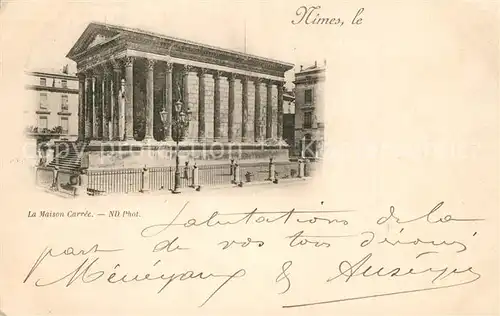 Nîmes, le
La Maison Carrée. — ND Phot.
Salutations de la
part de vos tous dévoués
&